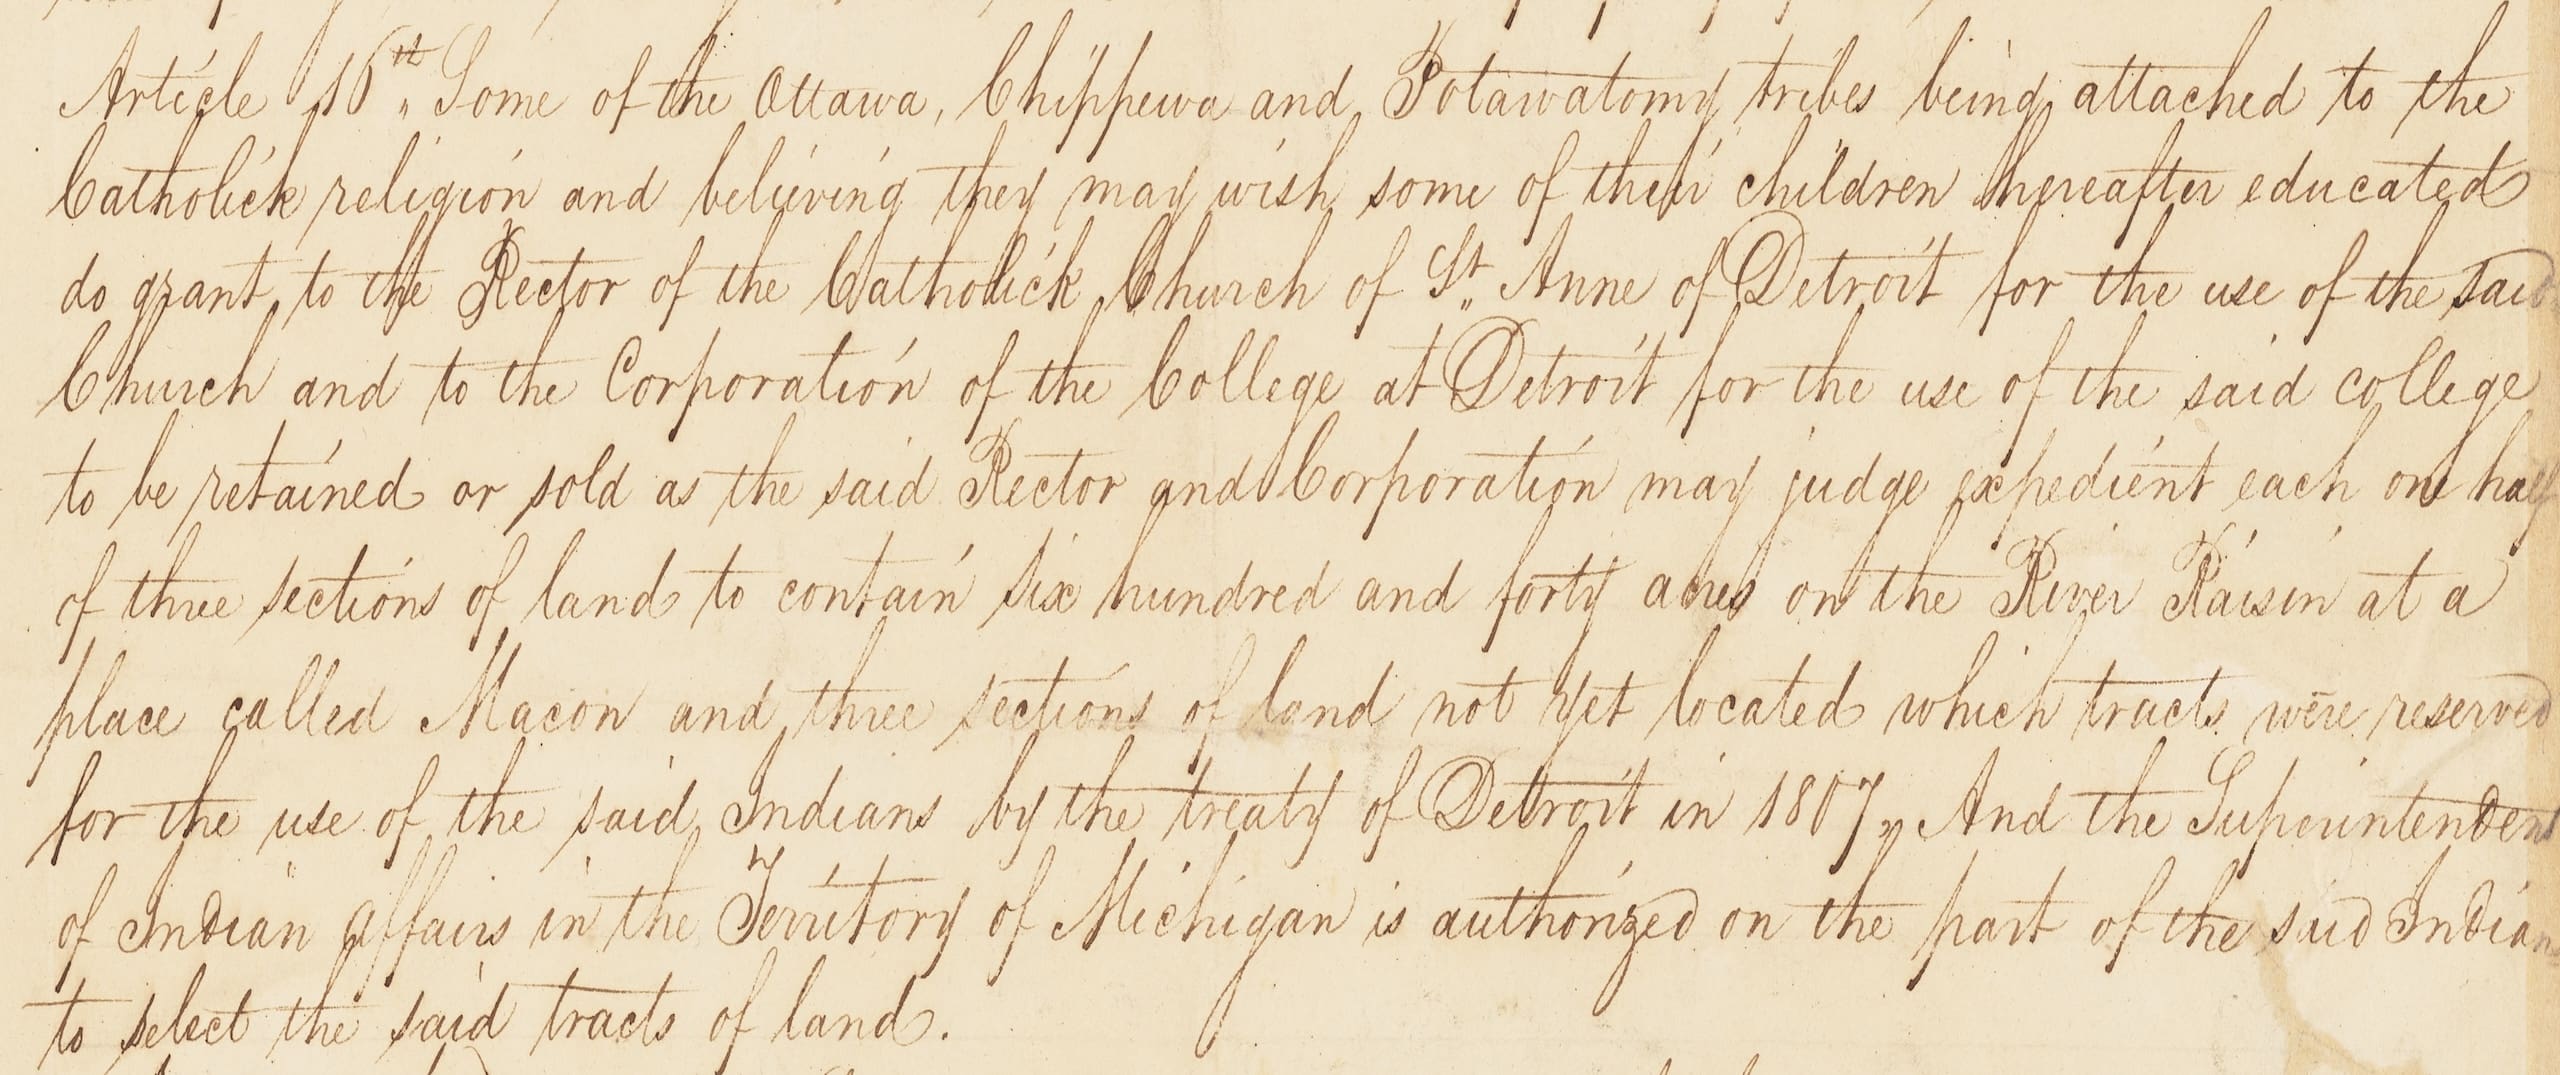 Article 16th. Some of the Ottawa, Chippewa and Potawatomy tribes being attached to the
Catholick religion and believing they may wish some of their children hereafter educated
do grant to the Rector of the Catholick Church of St. Anne of Detroit for the use of the said
Church and to the Corporation of the College at Detroit for the use of the said college
to be retained or sold as the said Rector and Corporation may judge expedient each one half
of three sections of land to contain six hundred and forty acres on the River Raisin at a
place called Macon and three sections of land not yet located which tracts were reserved
for the use of the said Indians by the treaty of Detroit in 1807, And the Superintendent
of Indian affairs in the Territory of Michigan is authorized on the part of the said Indians
to select the said tracts of land.